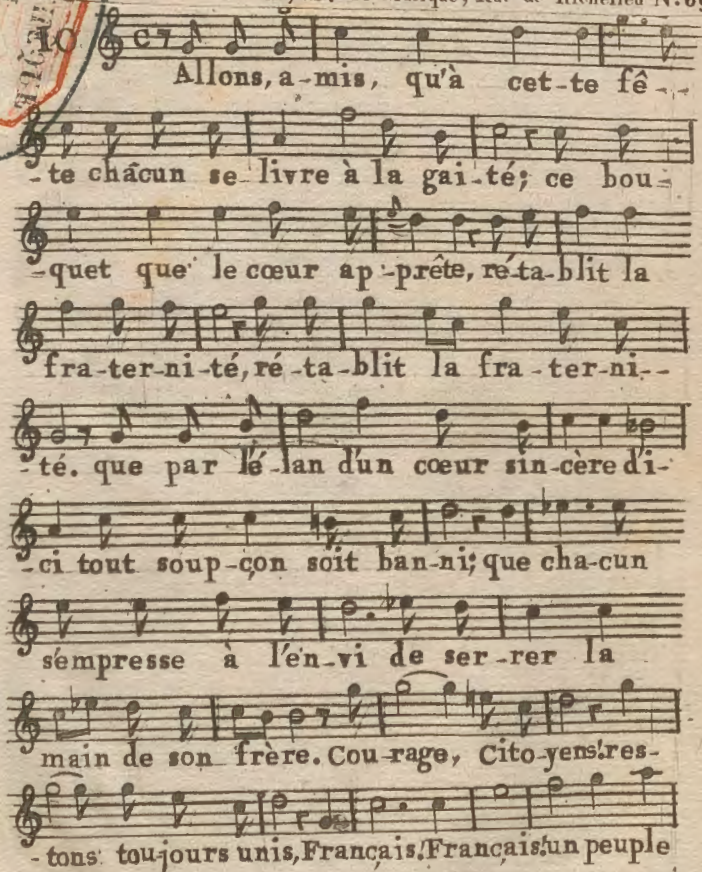 N.º 6
10
Allons, a-mis, qu'à cet-te fê--
-te chacun se livre à la gai-té; ce bou-
-quet que le cœur ap-prête, ré-ta-blit la
fra-ter-ni-té, ré-ta-blit la fra-ter-ni--
-té. que par l'é-lan d'un cœur sin-cère d'i-
-ci tout soup-çon soit ban-ni; que cha-cun
s'empresse à l'en-vi de ser-rer la
main de son frère. Cou-rage, Cito-yens! res-
-tons toujours unis, Français! Français! un peuple